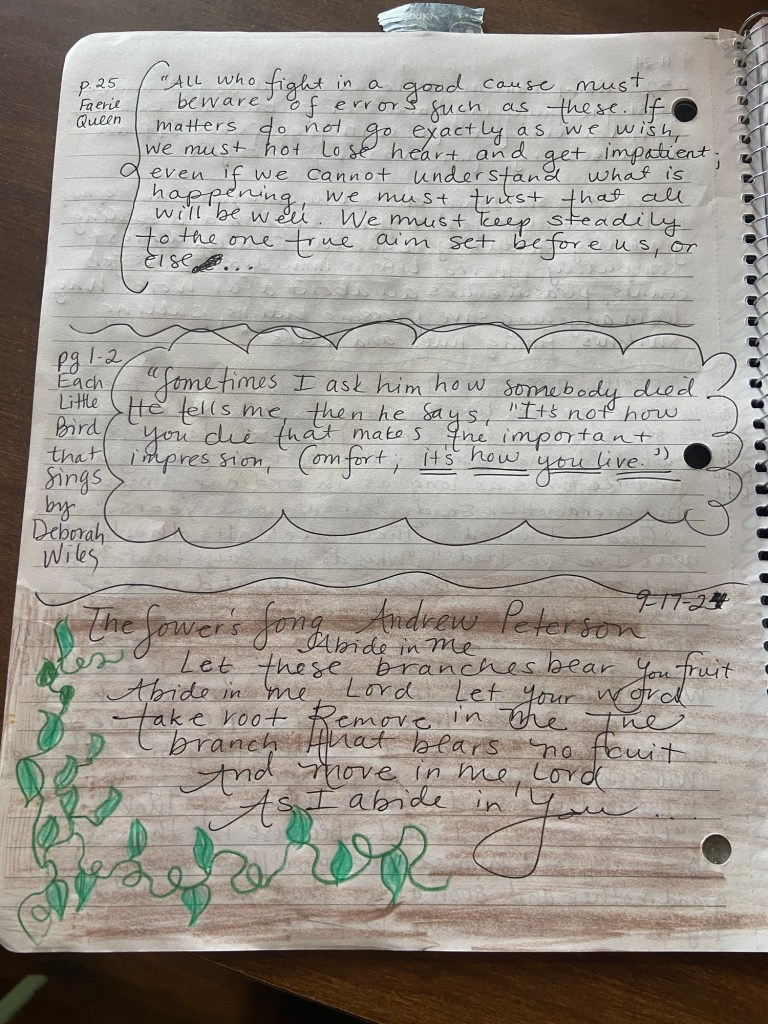 p. 25
Faerie
Queen
"All who fight in a good cause must
beware of errors such as these. If
matters do not go exactly as we wish,
we must not lose heart and get impatient;
even if we cannot understand what is
happening, we must trust that all
will be well. We must keep steadily
to the one true aim set before us, or
else ...
pg 1-2
Each
Little
Bird
that
Sings
by
Deborah
Wiles
"Sometimes I ask him how somebody died.
He tells me, then he says, "It's not how
you die that makes the important
impression, Comfort; it's how you live.")
9-17-24
The Sower's Song Andrew Peterson
Abide in me
Let these branches bear You fruit
Abide in me, Lord Let Your word
take root Remove in me the
branch that bears no fruit
And move in me, Lord
As I abide in You ....